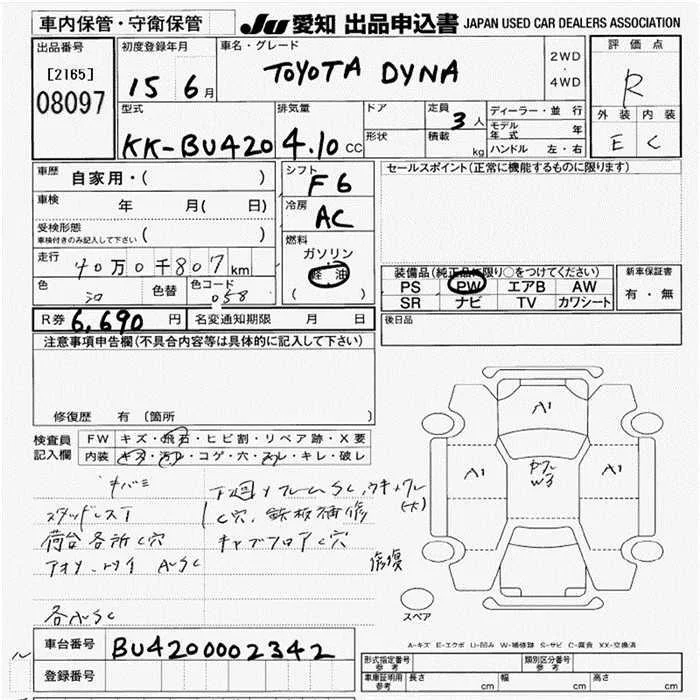 車内保管・守衛保管
JU 愛知 出品申込書 JAPAN USED CAR DEALERS ASSOCIATION
出品番号
[2165]
08097
初度登録年月
15 6月
車名・グレード
TOYOTA DYNA
2WD
・
4WD
評価点
R
外装 内装
E C
型式
KK-BU420
排気量
4.10 CC
ドア
形状
定員
3人
積載
kg
ディーラー・並行
モデル年式 年
ハンドル 左・右
車歴
自家用・( )
車検
年 月( 日)
受検形態
車検付きのみ記入して下さい ( )
走行
40万0千807km
色
色替
色コード
058
シフト
F6
冷房
AC
燃料
ガソリン
軽油
( )
セールスポイント(正常に機能するものに限ります)
装備品(純正品に限り○をつけてください)
PS PW エアB AW
SR ナビ TV カワシート
新車保証書
有・無
R券 6,690円 名変通知期限 月 日
後日品
注意事項申告欄(不具合内容等は具体的に記入して下さい)
修復歴 有 〔箇所 〕
検査員記入欄
FW キズ・飛石・ヒビ割・リペア跡・X要
内装 キズ・汚れ・コゲ・穴・スレ・キレ・破レ
スタッドレスT
荷台各所C穴
各所SC
C穴、鉄板補修
キャブフロアC穴
修復
A1
A1
A1
W3
スペア
A-キズ E-エクボ U-凹み W-補修跡 S-サビ C-腐食 XX-交換済
車台番号 BU4200002342
登録番号
形式指定番号 参考
類別区分番号 参考
車庫証明用 参考
長さ cm 幅 cm 高さ cm